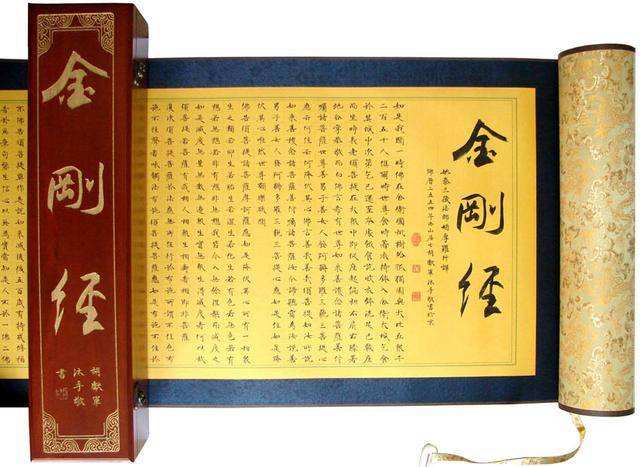 金剛經
姚秦三藏法師鳩摩羅什譯
佛曆二五五四年山居士胡獻軍沐手敬書於京
如是我聞一時佛在舍衛國祇樹給孤獨園與大比丘眾千
二百五十人俱爾時世尊食時著衣持缽入舍衛大城乞食
於其城中次第乞已還至本處飯食訖收衣缽洗足已敷座
而坐時長老須菩提在大眾中即從座起偏袒右肩右膝著
地合掌恭敬而白佛言希有世尊如來善護念諸菩薩善付
囑諸菩薩世尊善男子善女人發阿耨多羅三藐三菩提心
應云何住云何降伏其心佛言善哉善哉須菩提如汝所說
如來善護念諸菩薩善付囑諸菩薩汝今諦聽當為汝說善
男子善女人發阿耨多羅三藐三菩提心應如是住如是降
伏其心唯然世尊願樂欲聞
佛告須菩提諸菩薩摩訶薩應如是降伏其心所有一切眾
生之類若卵生若胎生若濕生若化生若有色若無色若有
想若無想若非有想非無想我皆令入無餘涅槃而滅度之
如是滅度無量無數無邊眾生實無眾生得滅度者何以故
須菩提若菩薩有我相人相眾生相壽者相即非菩薩
復次須菩提菩薩於法應無所住行於布施所謂不住色布
施不住聲香味觸法布施須菩提菩薩應如是布施不住於
金剛經
胡獻軍
沐手敬
書
不佛告須菩提莫作是說如來滅後後五百歲有持戒修福
者於此章句能生信心以此為實當知是人不於一佛二佛